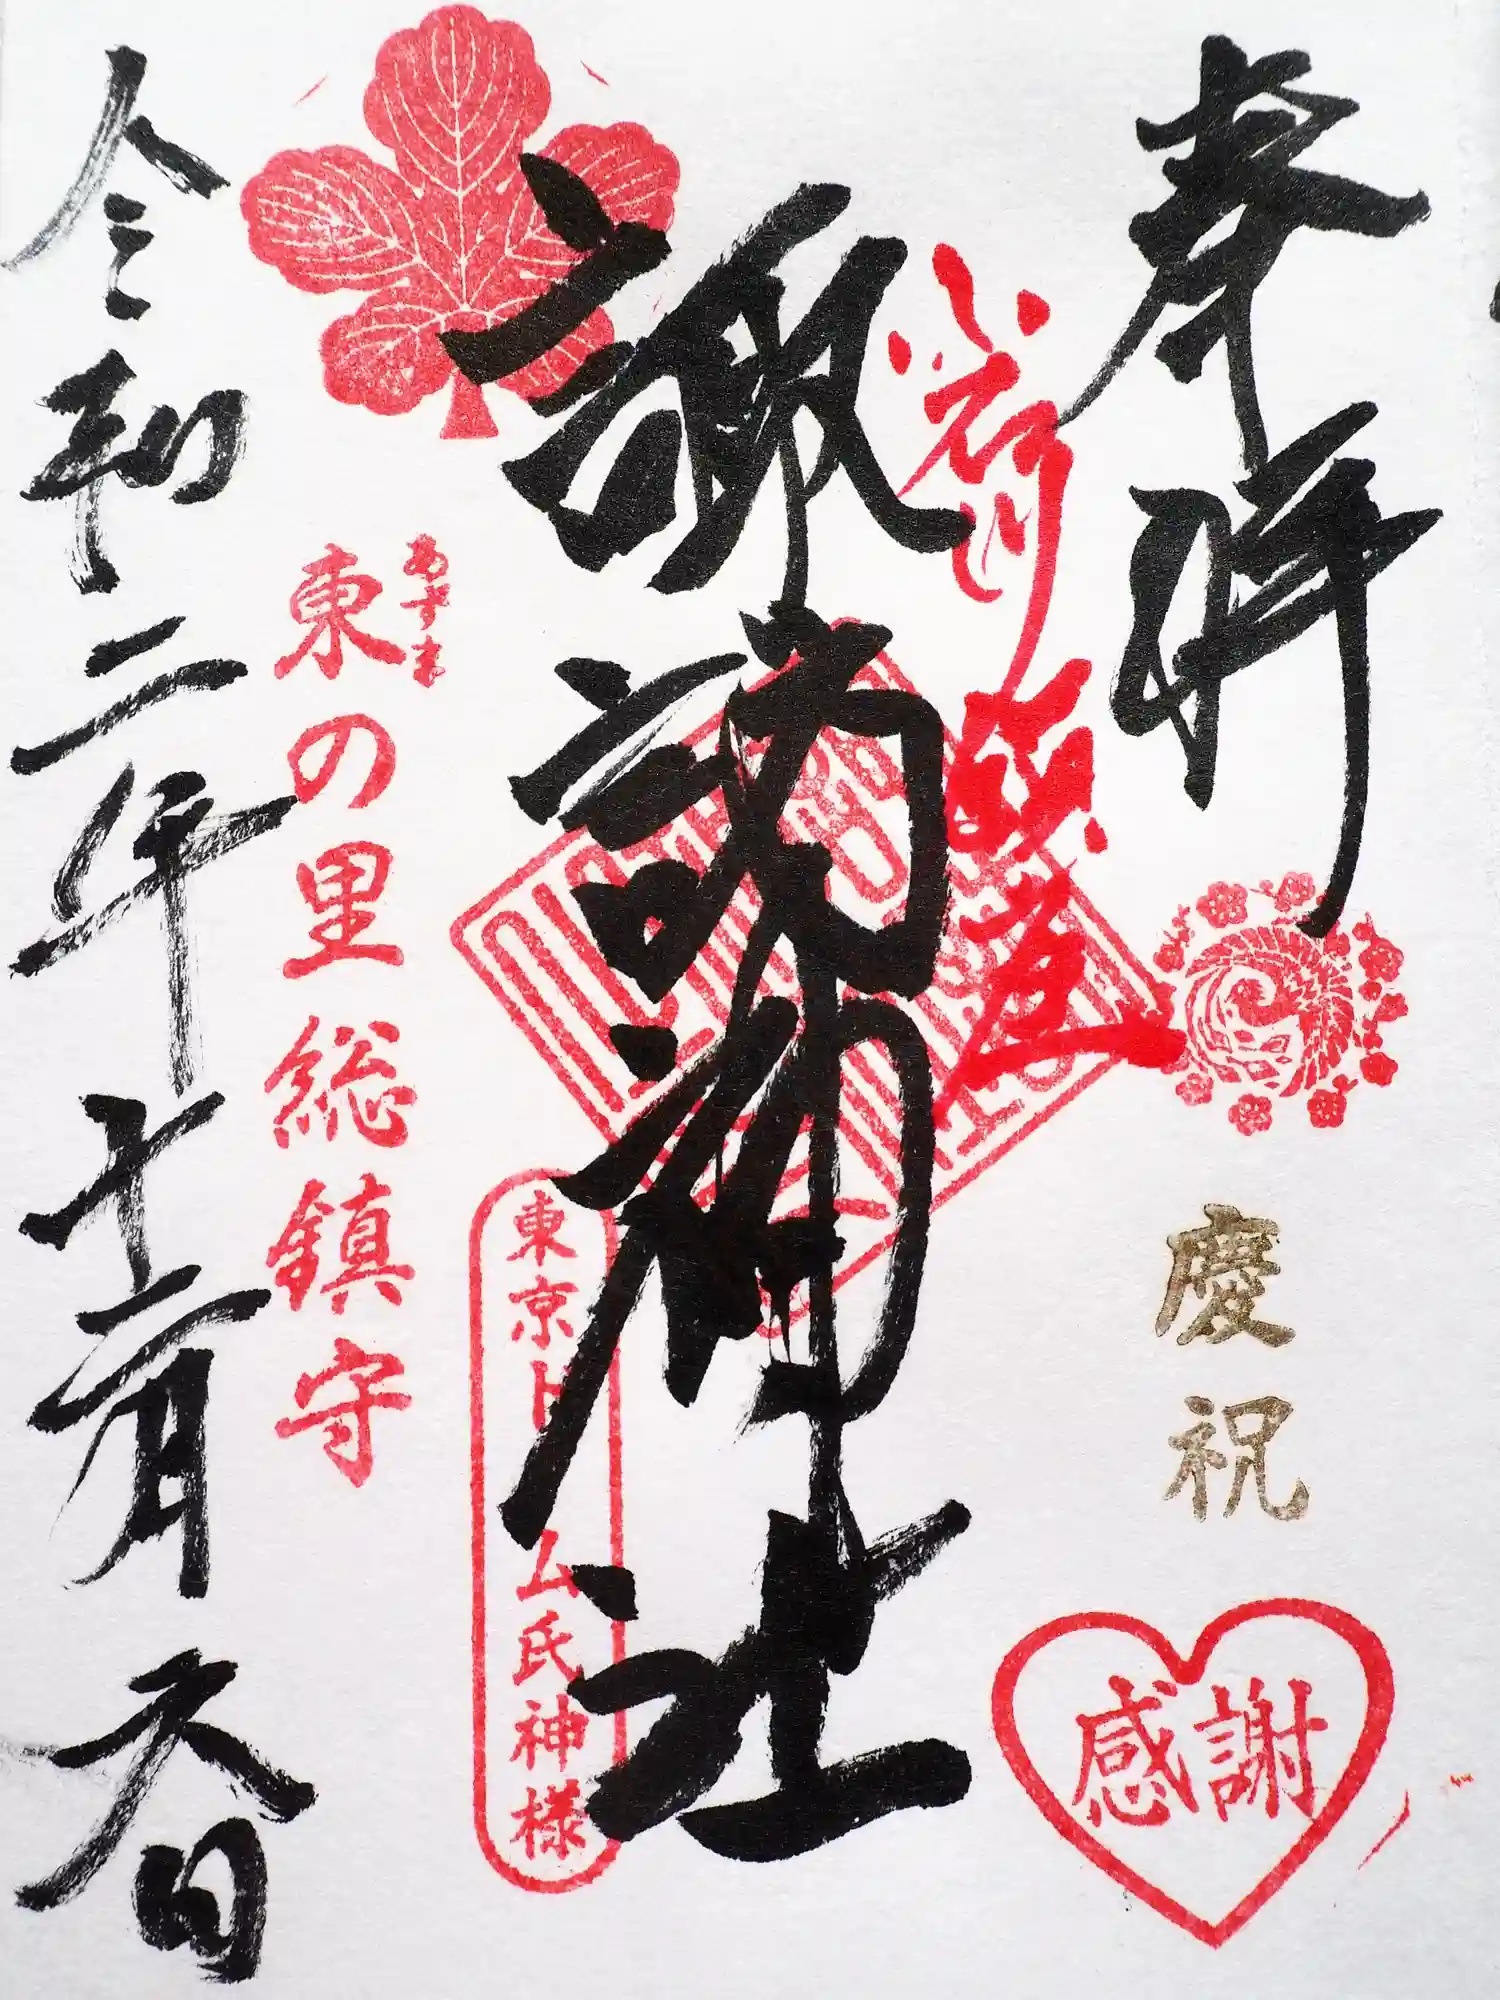 奉拝
慶祝
感謝
小石川鎮座
諏訪神社
東京ドーム氏神様
あずま
東の里総鎮守
令和二年